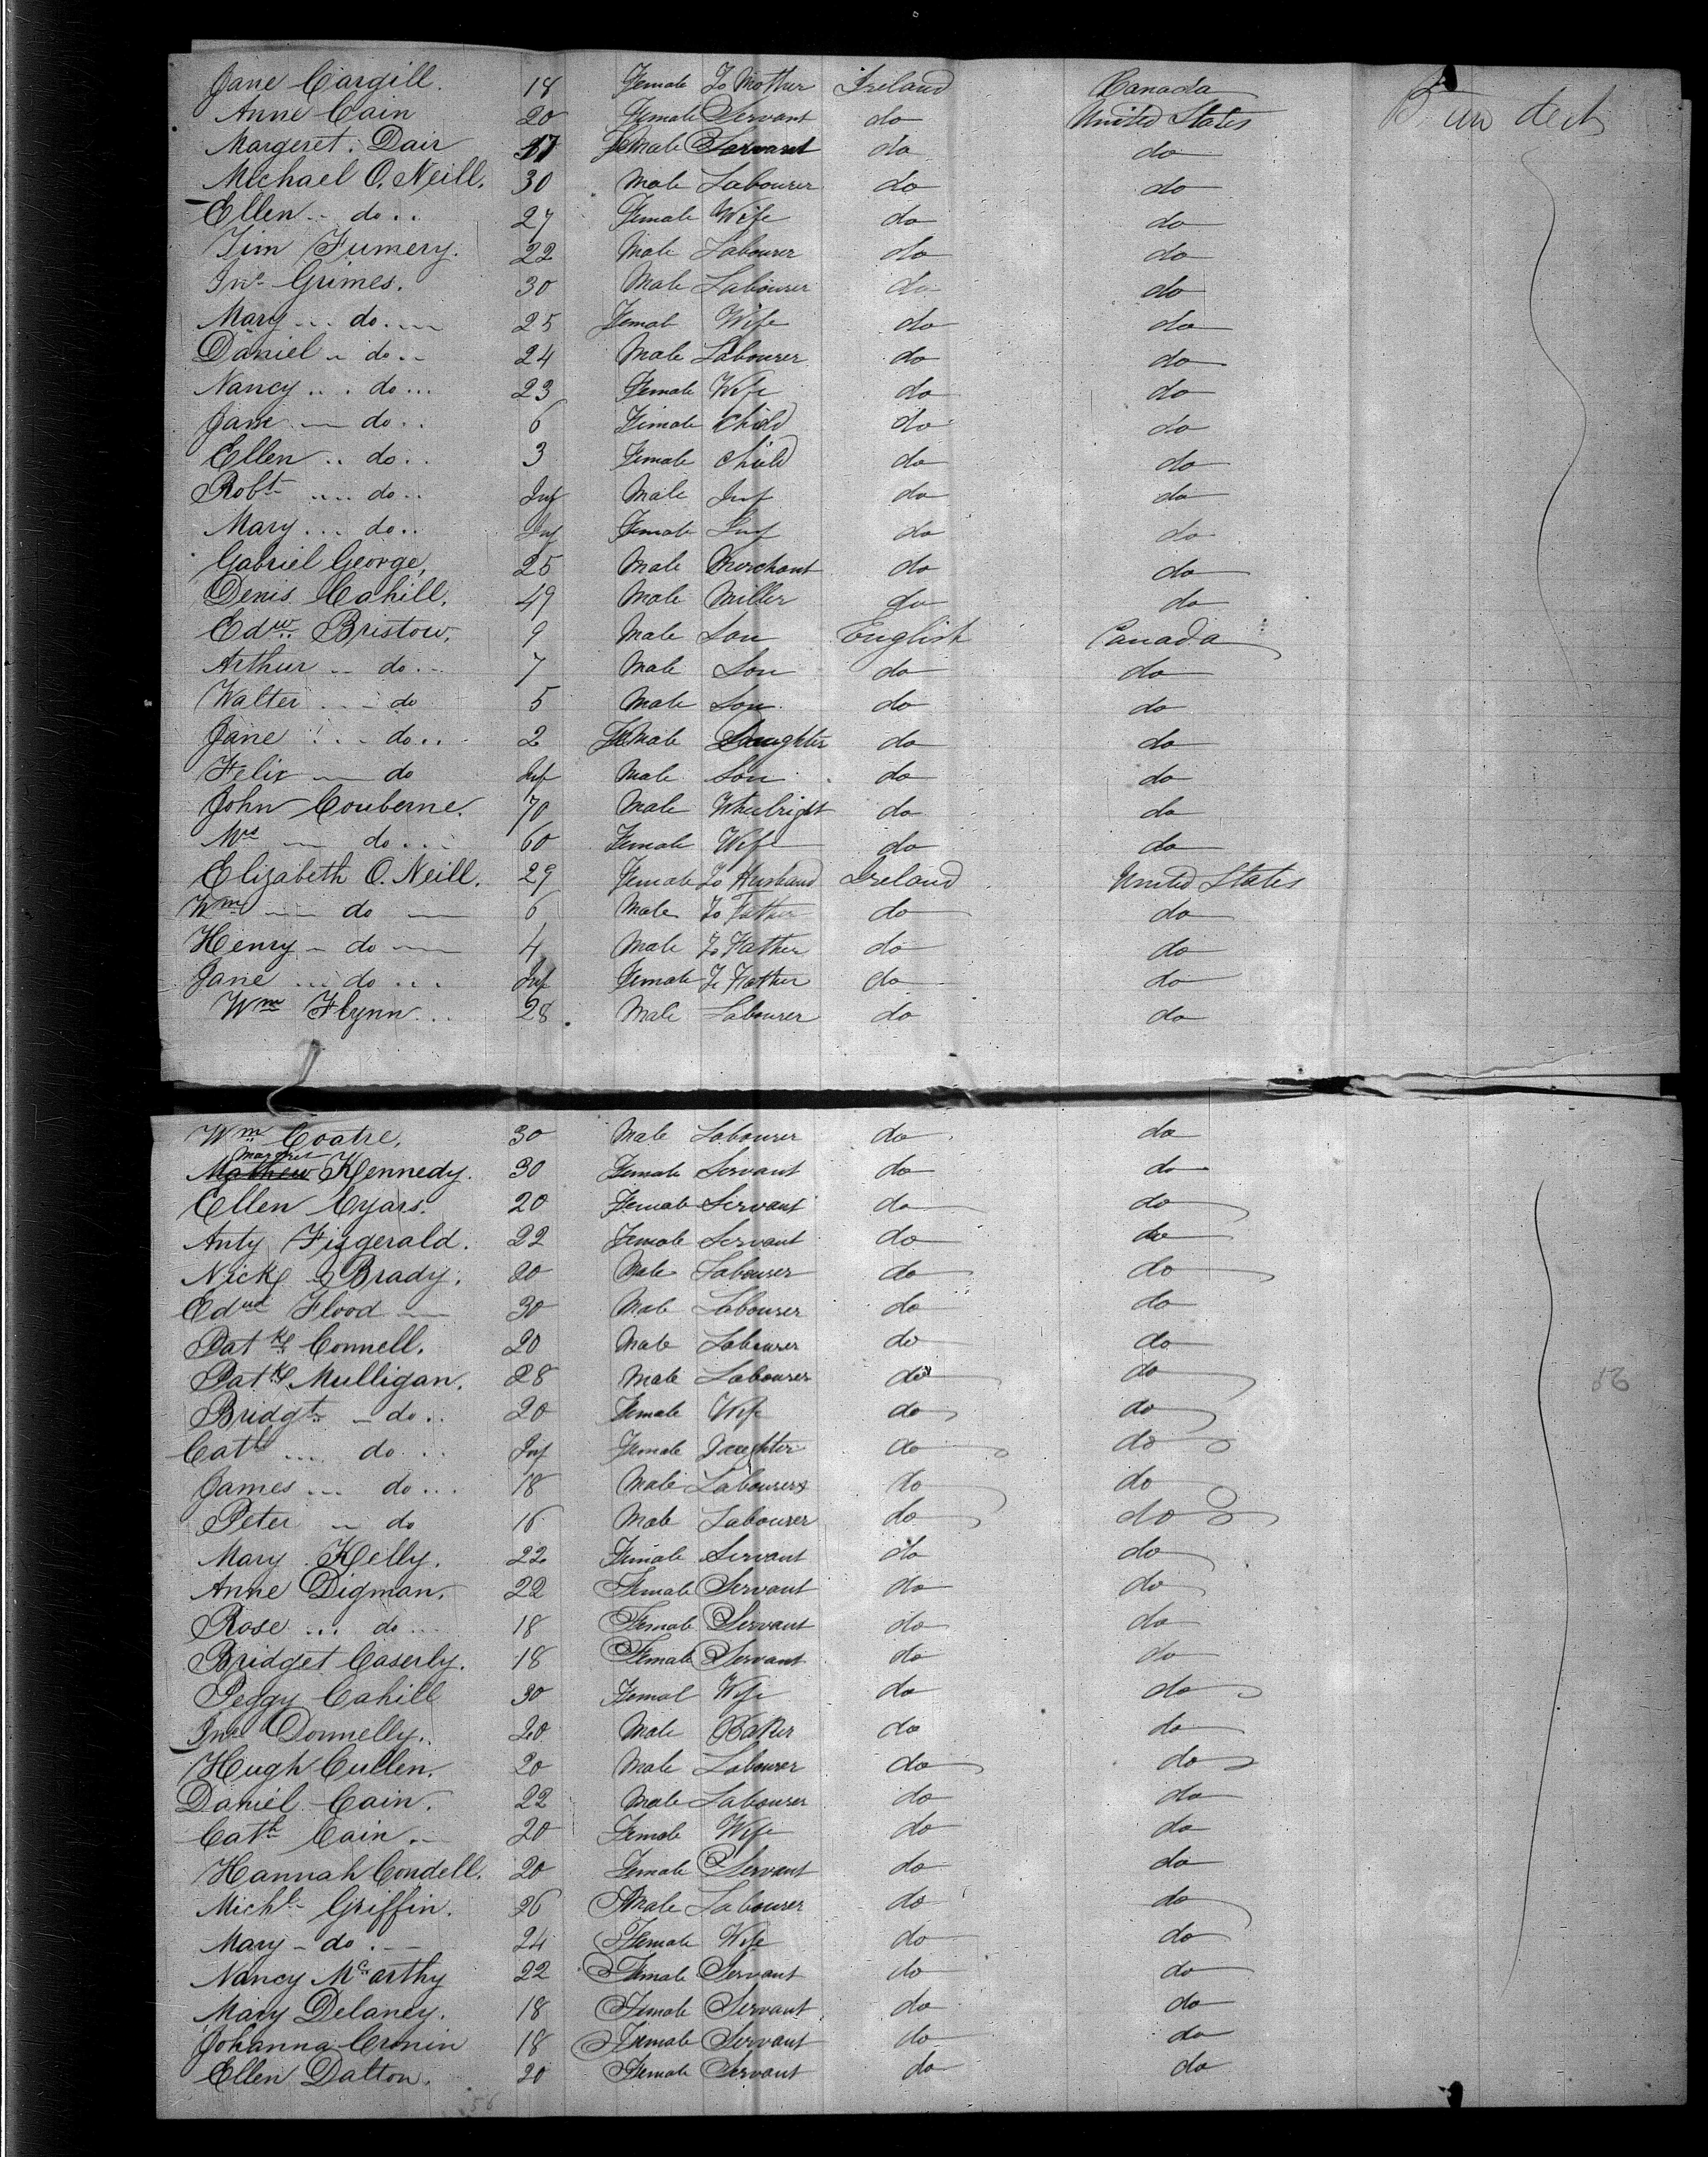 Jane Cargill. 18 Female To Mother Ireland Canada
Anne Cain 20 Female Servant do United States
Margeret. Dair 17 Female Servant do do
Michael O. Neill. 30 Male Labourer do do
Ellen .. do .. 27 Female Wife do do
Tim Fumery. 22 Male Labourer do do
Jno Grimes. 30 Male Labourer do do
Mary ... do ... 25 Femal Wife do do
Daniel .. do .. 24 Male Labourer do do
Nancy ... do ... 23 Female Wife do do
Jane — do .. 6 Female Child do do
Ellen .. do .. 3 Female Child do do
Robt .... do .. Inf Male Inf do do
Mary ... do .. Inf Female Inf do do
Gabriel George, 25 Male Merchant do do
Denis Cahill. 49 Male Miller do do
Edw. Bristow. 9 Male Son English Canada
Arthur .. do .. 7 Male Son do do
Walter ... do 5 Male Son do do
Jane ... do .. 2 Female Daughter do do
Felix — do Inf Male Son do do
John Couberne. 70 Male Wheelright do do
Mrs — do ... 60 Female Wife do do
Elizabeth O. Neill. 29 Female To Husband Ireland United States
Wm — do — 6 Male To Father do do
Henry - do — 4 Male To Father do do
Jane ... do ... Inf Female To Father do do
Wm Flynn .. 28 Male Labourer do do
Wm Coatre. 30 Male Labourer do do
Margret
Mathew Kennedy. 30 Female Servant do do
Ellen Cyars. 20 Female Servant do do
Anty Fizgerald. 22 Female Servant do do
Nick Brady. 20 Male Labourer do do
Edwd Flood — 30 Male Labourer do do
Patk Connell. 20 Male Labourer do do
Patk Mulligan. 28 Male Labourer do do
Bridgt — do .. 20 Female Wife do do
Cath .... do ... Inf Female Daughter do do
James ... do ... 18 Male Labourer do do
Peter — do 16 Male Labourer do do
Mary Kelly. 22 Female Servant do do
Anne Digman. 22 Female Servant do do
Rose ... do ... 18 Female Servant do do
Bridget Caserly. 18 Female Servant do do
Peggy Cahill 30 Femal Wife do do
Jno Donnelly. 20 Male Baker do do
Hugh Cullen. 20 Male Labourer do do
Daniel Cain. 22 Male Labourer do do
Cath Cain. 20 Female Wife do do
Hannah Condell. 20 Female Servant do do
Michl Griffin. 26 Male Labourer do do
Mary - do .— 24 Female Wife do do
Nancy Mcarthy 22 Female Servant do do
Mary Delaney. 18 Female Servant do do
Johanna Cronin 18 Female Servant do do
Ellen Dalton. 20 Female Servant do do